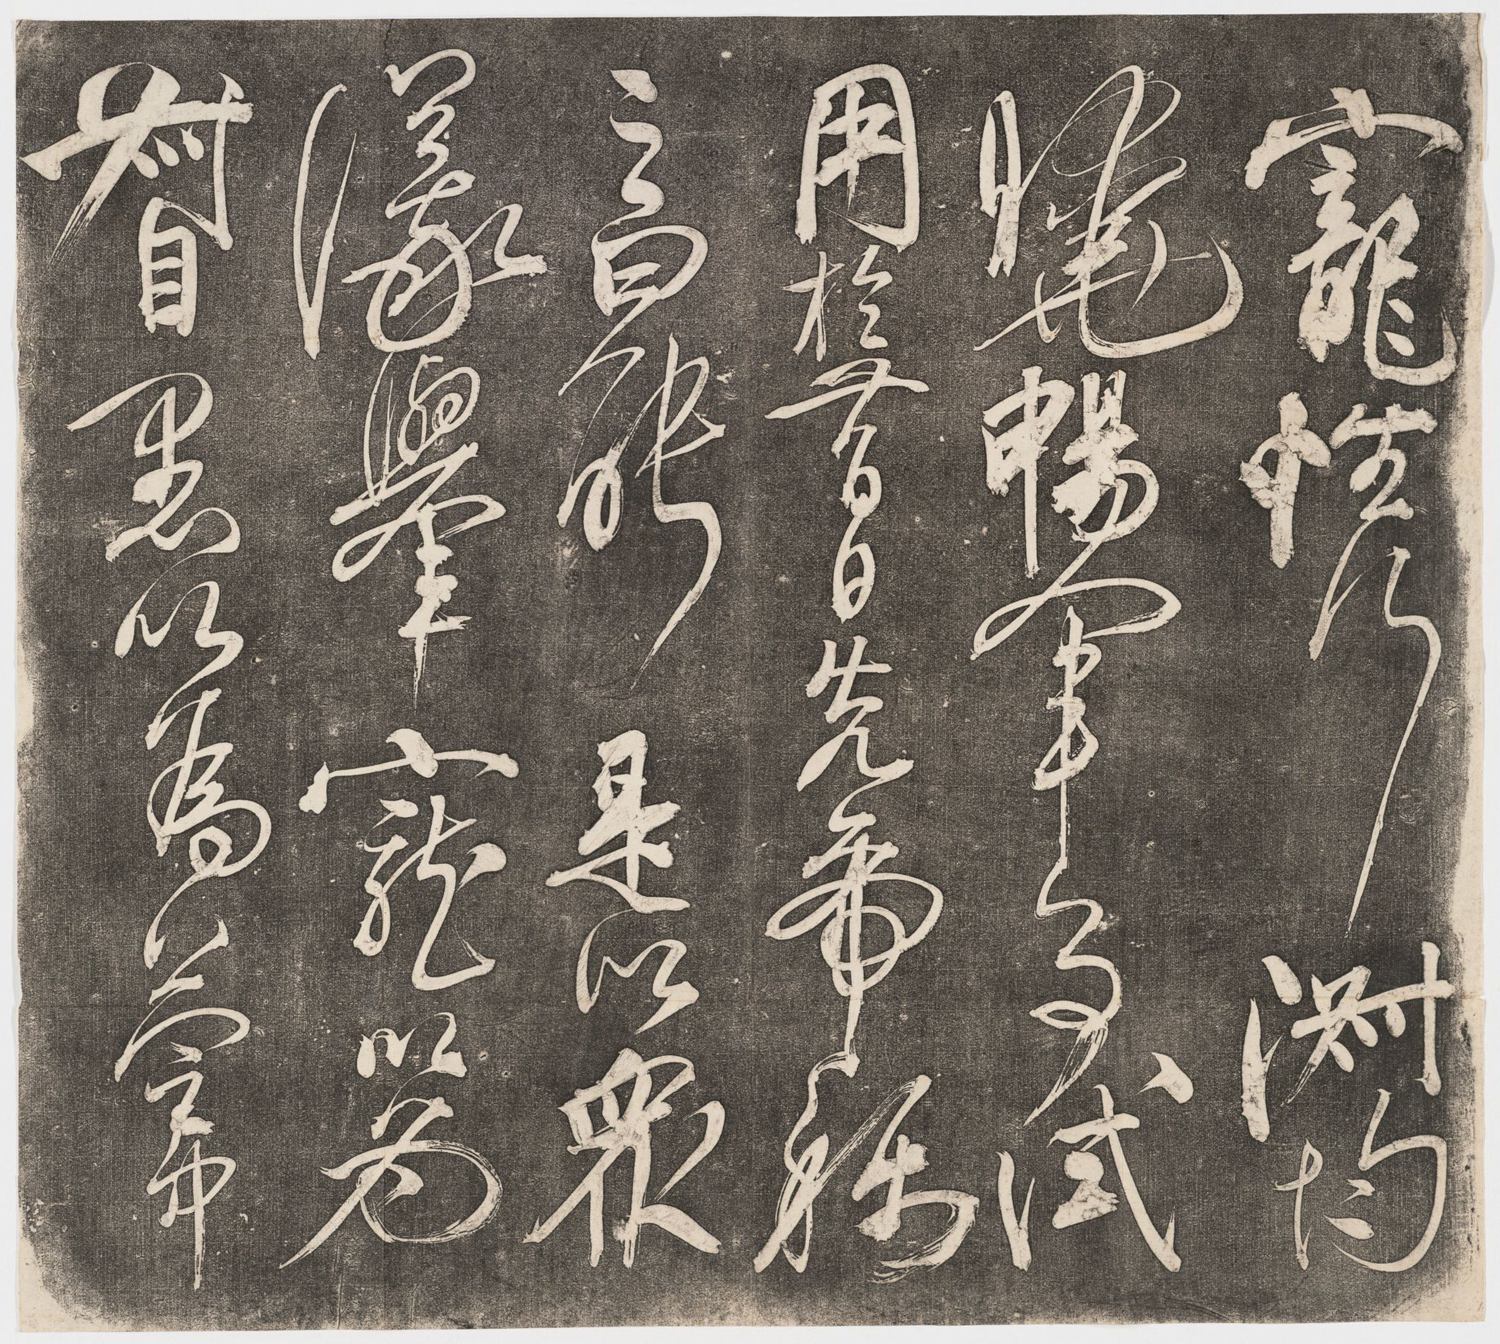 寵性行淑均
曉暢軍事試
用於昔日先帝稱
之曰能是以眾
議舉寵以為
督愚以為營中